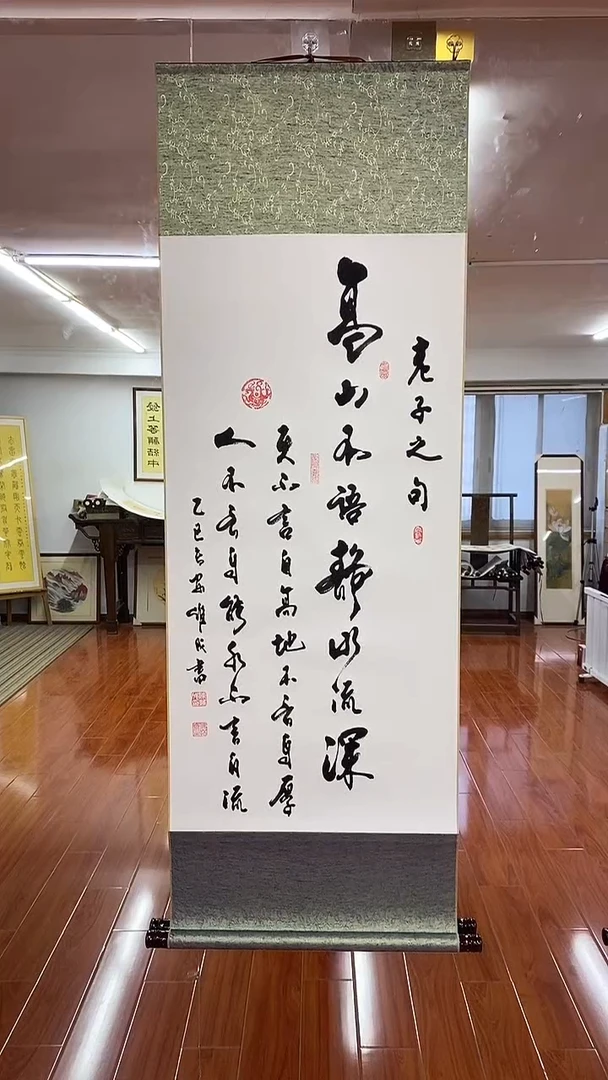 老子之句
高山不语静水流深
天不言自高地不言自厚
人不言自能水不言自流
乙巳长安书